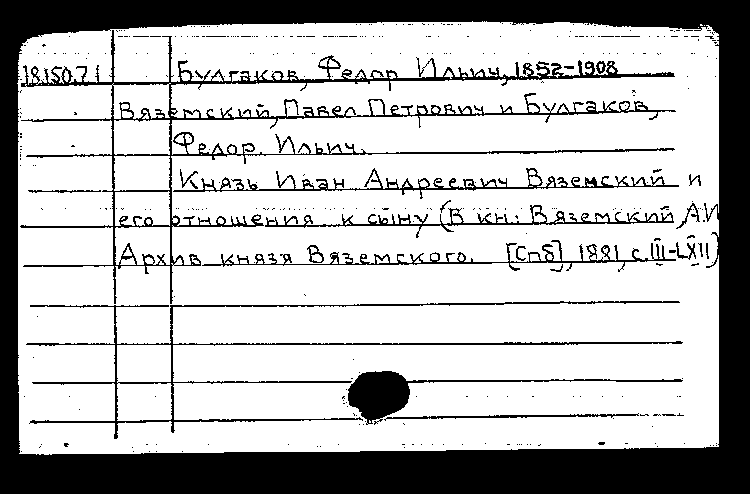 18150.71 Булгаков, Федор Ильич, 1852-1908
Вяземский, Павел Петрович и Булгаков,
Федор Ильич.
Князь Иван Андреевич Вяземский и
его отношения к сыну (В кн.: Вяземский, А.И
Архив князя Вяземского. [Спб], 1881, с. III-LXII)